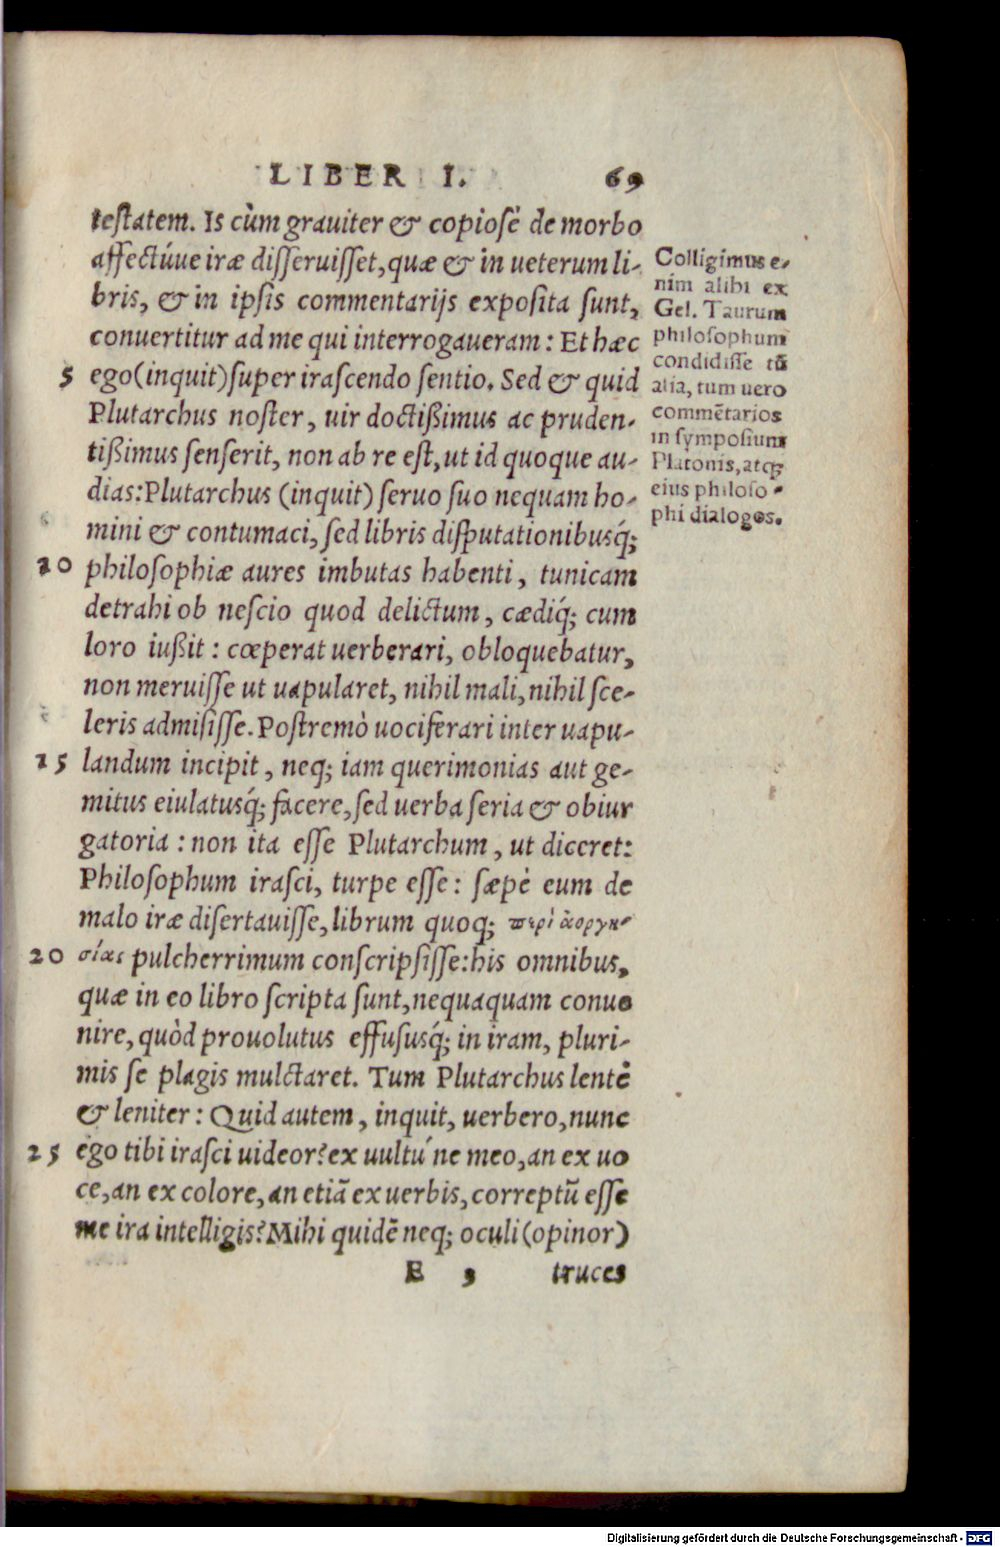 LIBER I. 69
testatem. Is cùm grauiter & copiosè de morbo
affectúue iræ disseruisset, quæ & in ueterum li-
bris, & in ipsis commentarijs exposita sunt,
conuertitur ad me qui interrogaueram: Et hæc
5 ego (inquit) super irascendo sentio. Sed & quid
Plutarchus noster, uir doctißimus ac pruden-
tißimus senserit, non ab re est, ut id quoque au-
dias: Plutarchus (inquit) seruo suo nequam ho-
mini & contumaci, sed libris disputationibusq́;
10 philosophiæ aures imbutas habenti, tunicam
detrahi ob nescio quod delictum, cædiq́; cum
loro iußit: cœperat uerberari, obloquebatur,
non meruisse ut uapularet, nihil mali, nihil sce-
leris admisisse. Postremò uociferari inter uapu-
15 landum incipit, neq; iam querimonias aut ge-
mitus eiulatusq́; facere, sed uerba seria & obiur
gatoria: non ita esse Plutarchum, ut diceret:
Philosophum irasci, turpe esse: sæpè eum de
malo iræ disertauisse, librum quoq; περὶ ἀοργη-
20 σίας pulcherrimum conscripsisse: his omnibus,
quæ in eo libro scripta sunt, nequaquam conue
nire, quòd prouolutus effususq́; in iram, pluri-
mis se plagis mulctaret. Tum Plutarchus lentè
& leniter: Quid autem, inquit, uerbero, nunc
25 ego tibi irasci uideor? ex uultú ne meo, an ex uo
ce, an ex colore, an etiã ex uerbis, correptũ esse
me ira intelligis? Mihi quidẽ neq; oculi (opinor)
E 3 truces
Colligimus e-
nim alibi ex
Gel. Taurum
philosophum
condidisse tũ
alia, tum uero
commẽtarios
in symposium
Platonis, atq;
eius philoso-
phi dialogos.
Digitalisierung gefördert durch die Deutsche Forschungsgemeinschaft - DFG